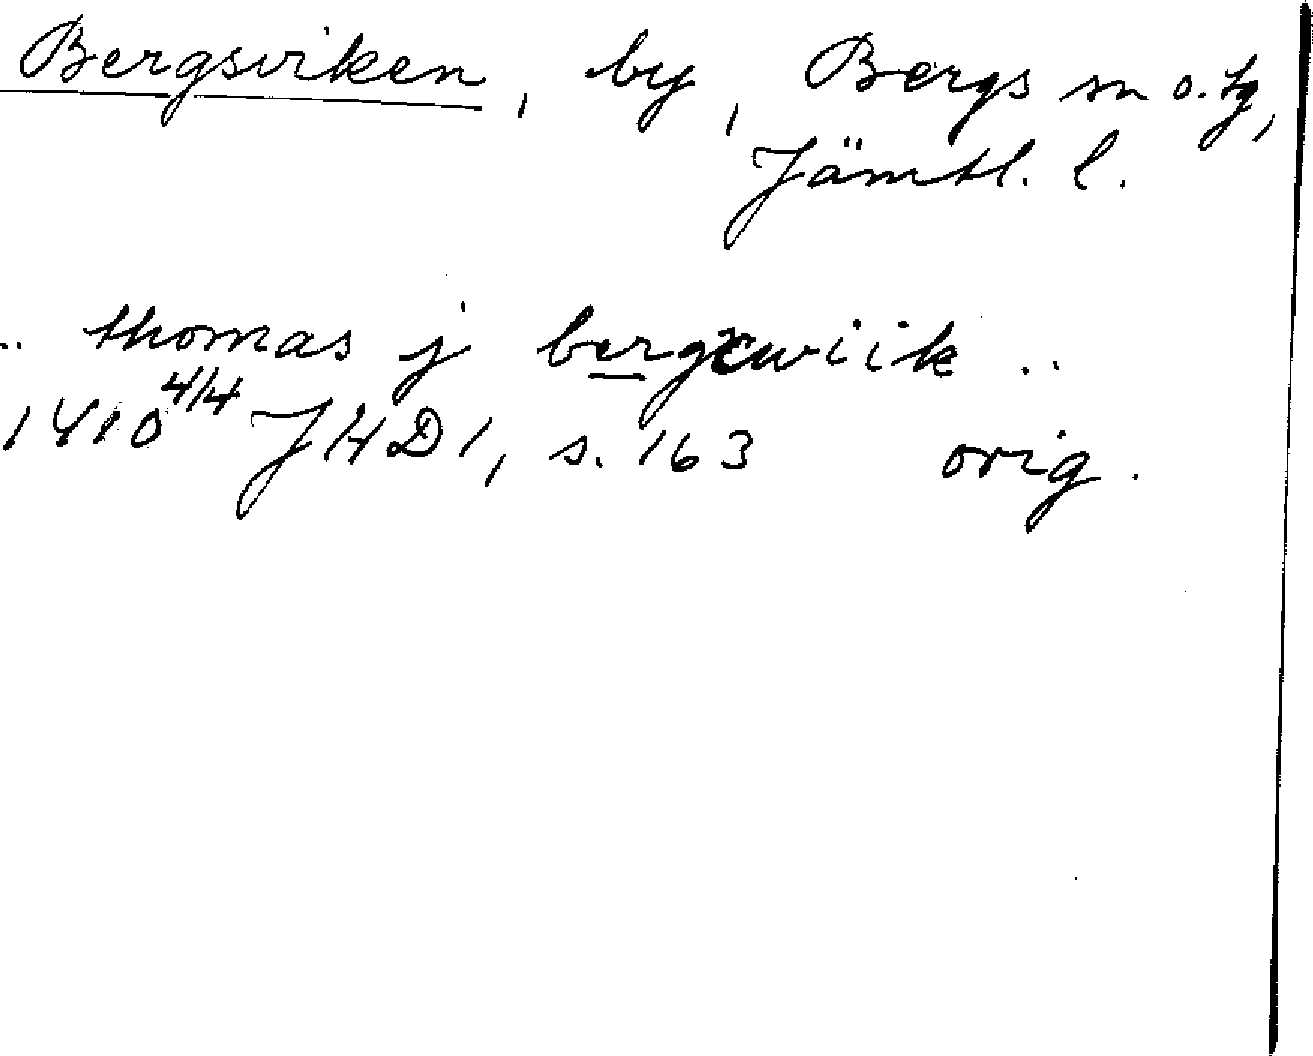 Bergsviken, by, Bergs sn o. tg,
Jämtl. l.
.. thomas j bergxwiik ..
1410 4/4 JHD 1, s. 163 orig.